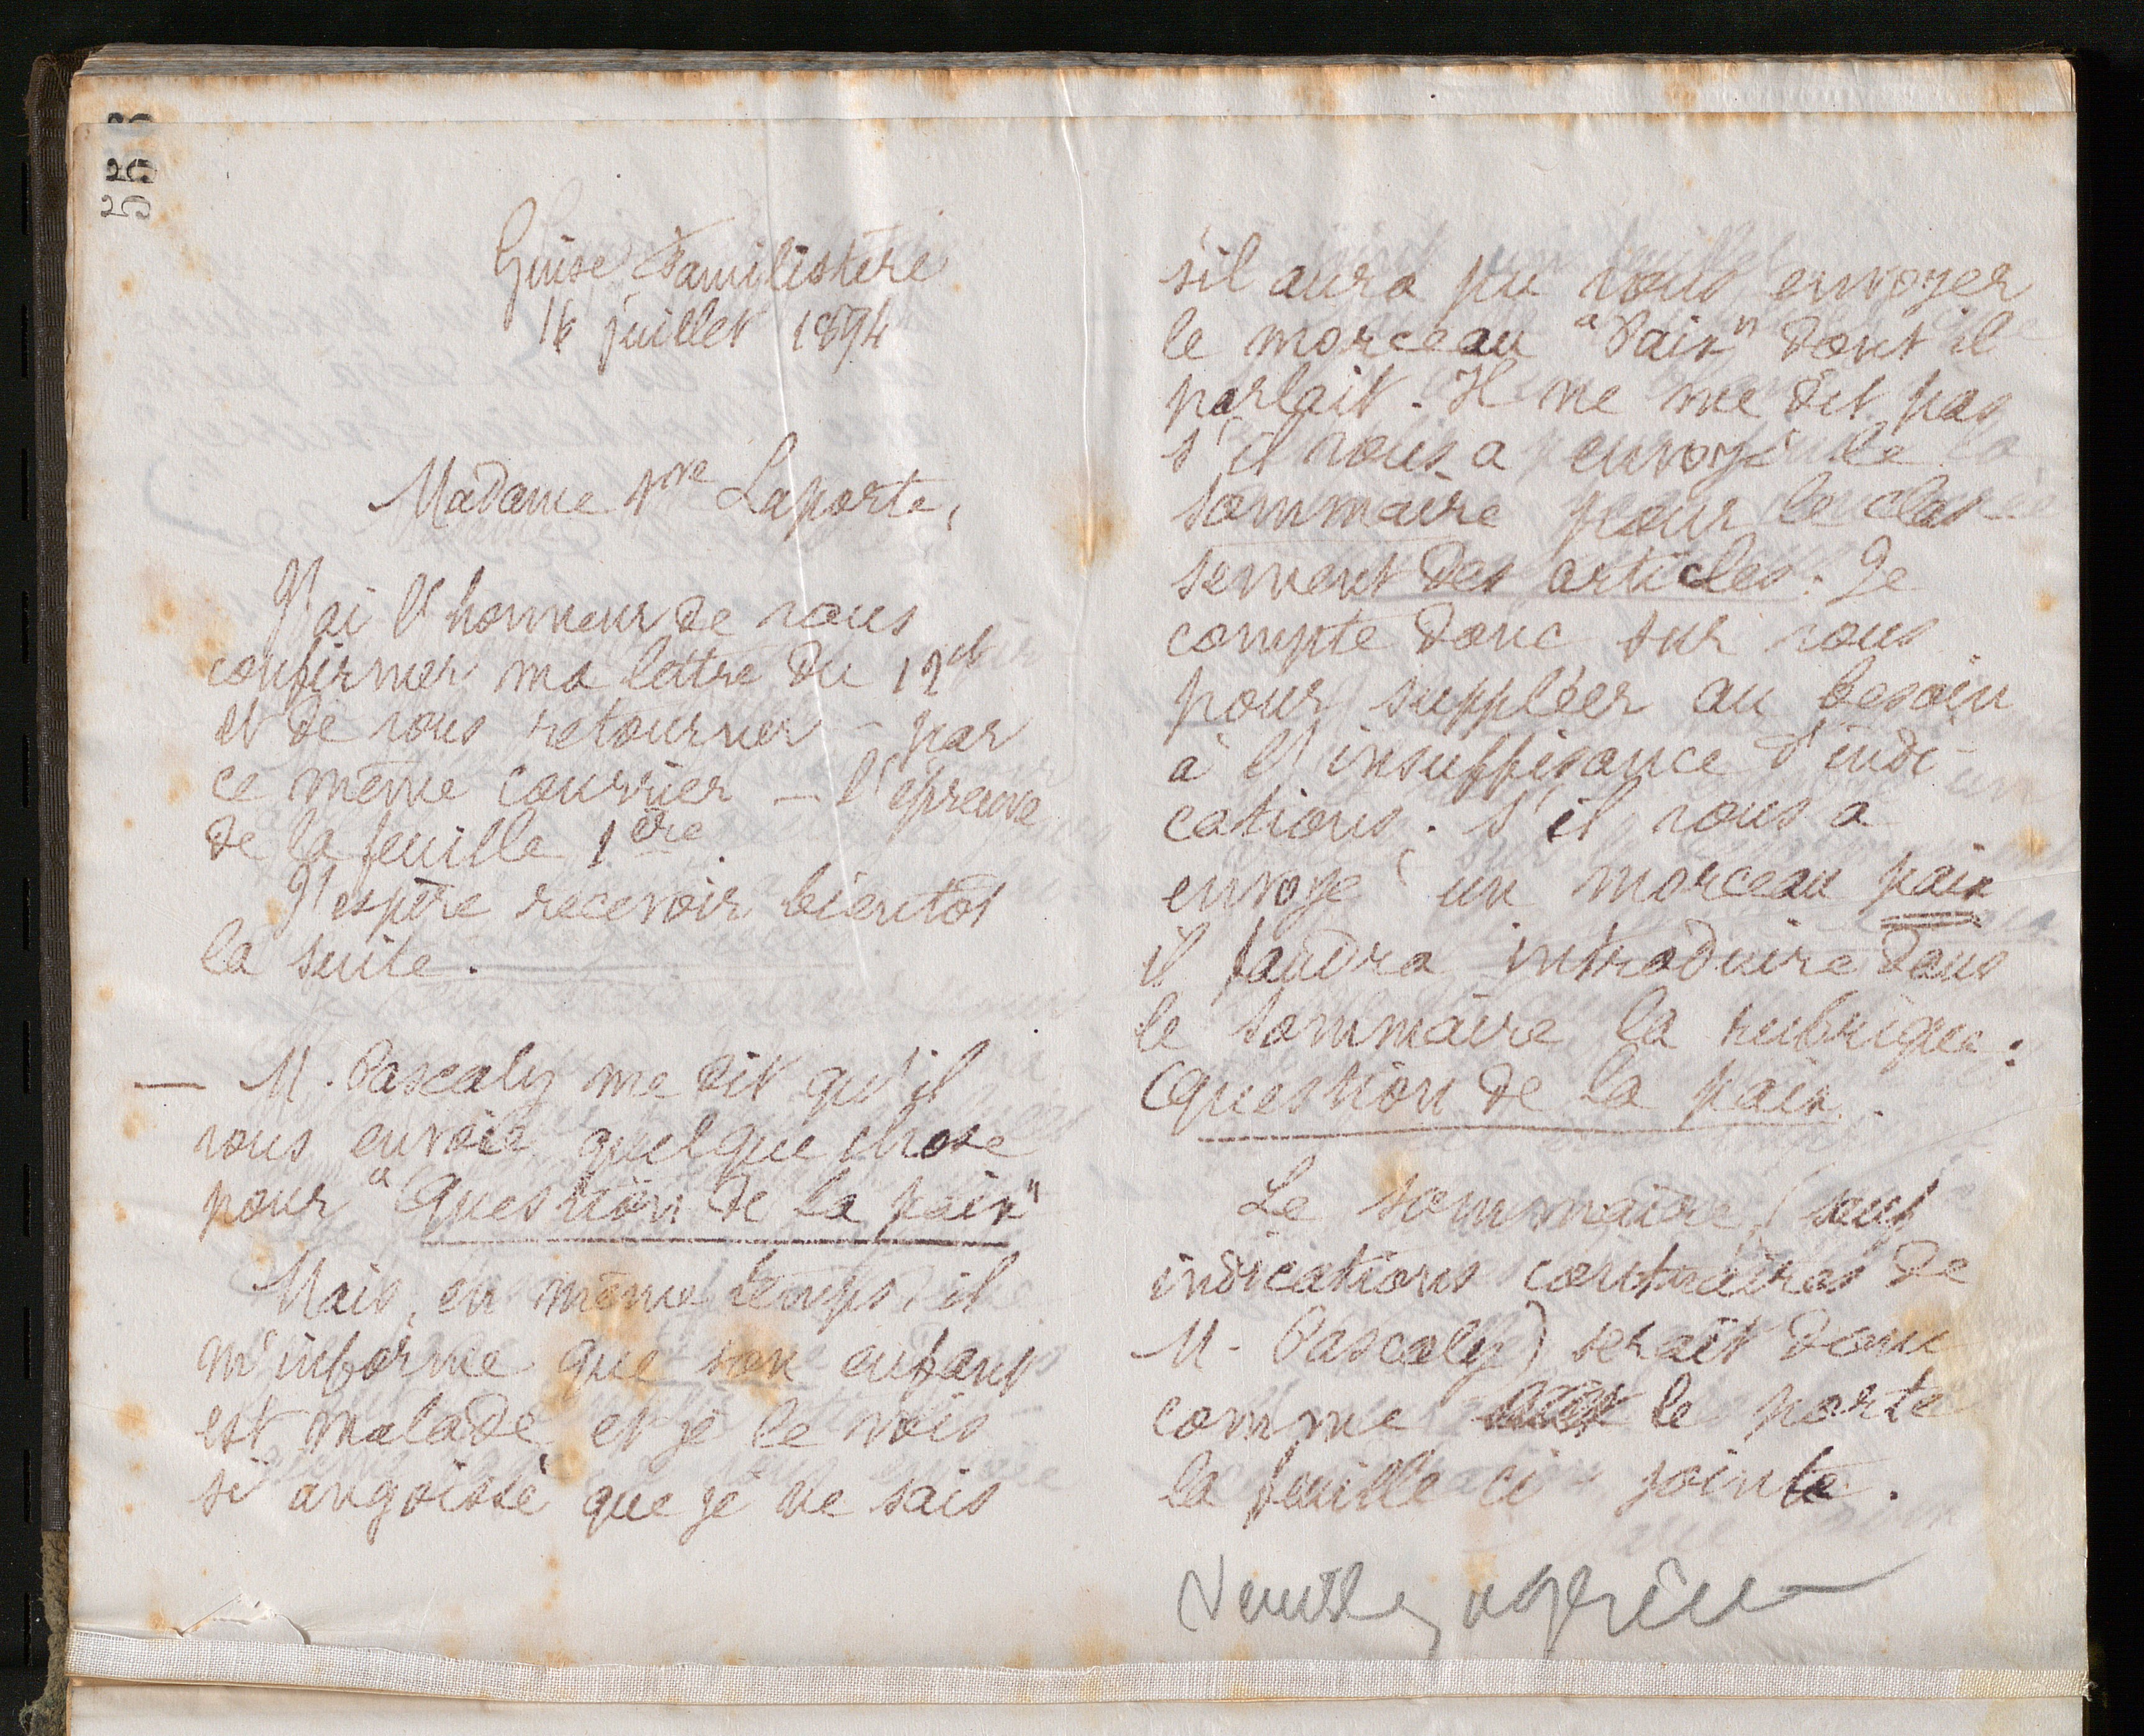 Guise Familistère
16 juillet 1894
Madame Vve Laporte,
J'ai l'honneur de vous
confirmer ma lettre du 12 ct
et de vous retourner - par
ce même courrier - l'épreuve
de la feuille 1ère.
J'espère recevoir bientôt
la suite.
— M. Pascaly me dit qu'il
vous envoie quelque chose
pour "Question de la paix"
Mais, en même temps, il
m'informe que son enfant
est malade et je le vois
si angoissé que je ne sais
s'il aura pu vous envoyer
le morceau "Paix" dont il
parlait. Il ne me dit pas
s'il vous a envoyé le
sommaire pour le clas
sement des articles. Je
compte donc sur vous
pour suppléer au besoin
à l'insuffisance d'indi-
cations. S'il vous a
envoyé un morceau paix
il faudra introduire dans
le sommaire la rubrique :
Question de la paix.
Le sommaire (sauf
indications contraires de
M. Pascaly) serait donc
comme le porte
la feuille ci jointe.